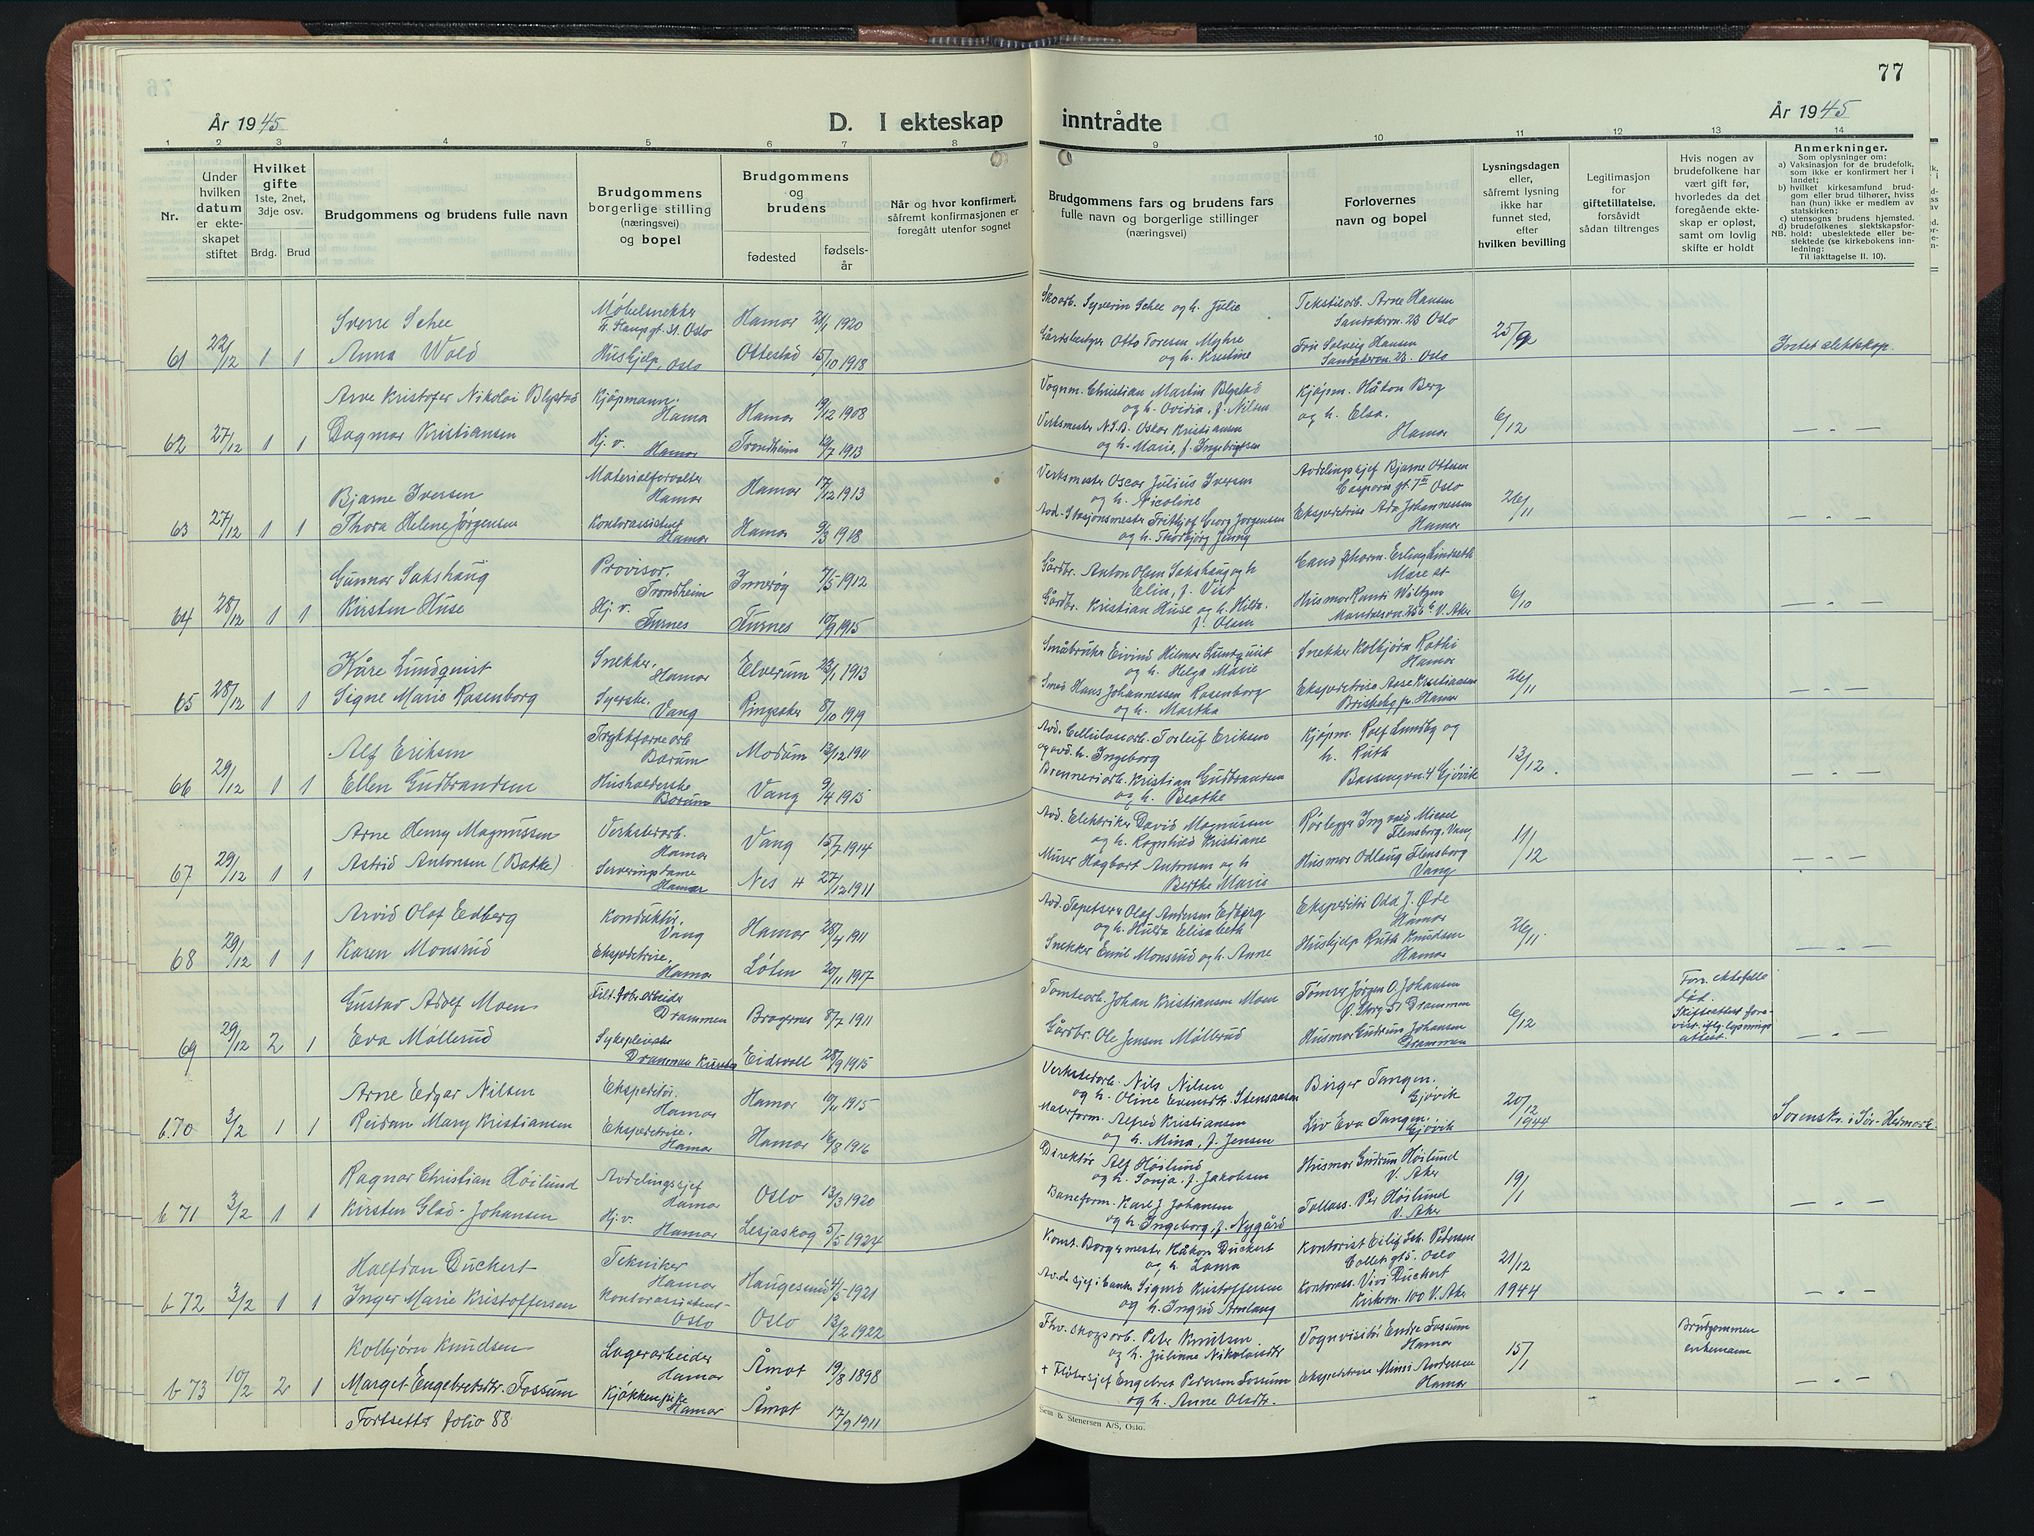 77
År 1945
D. I ekteskap inntrådte
År 1945
1 2 3 4 5 6 7 8 9 10 11 12 13 14
Nr.
Under hvilken datum er ekteskapet stiftet
Hvilket gifte 1ste, 2net, 3dje osv.
Brdg. Brud
Brudgommens og brudens fulle navn
Brudgommens borgerlige stilling (næringsvei) og bopel
Brudgommens og brudens
fødested
fødselsår
Når og hvor konfirmert, såfremt konfirmasjonen er foregått utenfor sognet
Brudgommens fars og brudens fars fulle navn og borgerlige stillinger (næringsvei)
Forlovernes navn og bopel
Lysningsdagen eller, såfremt lysning ikke har funnet sted, efter hvilken bevilling
Legitimasjon for giftetillatelse, forsåvidt sådan tiltrenges
Hvis nogen av brudefolkene har vært gift før, hvorledes da det foregående ekteskap er opløst, samt om lovlig skifte er holdt
Anmerkninger.
Som oplysninger om:
a) Vaksinasjon for de brudefolk, som ikke er konfirmert her i landet;
b) hvilket kirkesamfund brudgom eller brud tilhører, hvis han (hun) ikke er medlem av statskirken;
c) utensogns brudens hjemsted.
d) brudefolkenes slektskapsforhold: ubeslektede eller beslektede (se kirkebokens innledning:
Til iakttagelse II. 10).
61 22/12 1 1
Sverre Schee
Anna Wold
Møbelsnekker
Oslo
Hushjelp, Oslo
Hamar 21/1 1920
Ottestad 15/10 1918
Skoarb. Syverin Schee og h. Julie
Otto Toresen Myhre
og h. Kristine
Tekstilarb. Arne Hansen
Sandakervn. 23 Oslo
Fru Solveig Hansen
Sandakervn. 23. Oslo
25/9
62 27/12 1 1
Arve Kristofer Nikolai Blystad
Dagmar Kristiansen
Kjøpmann.
Hamar
Hj. v. Hamar
Hamar 19/12 1908
Trondheim 1913
Vognm. Christian Martin Blystad
og h. Ovidia, f. Nilsen
Verksmester N.S.B. Oskar Kristiansen
og h. Marie, f. Ingebrigtsen
Kjøpm. Håkon Berg
og h. Elsa.
Hamar
6/12
— „ —
63 27/12 1 1
Bjarne Iversen
Thora Helene Jørgensen
Materialforvalter
Hamar
Kontorassistent
Hamar
Hamar 17/12 1913
Hamar 9/3 1918
Verksmester Oscar Julius Iversen
og h. Nicoline
Frithjof Georg Jørgensen
og h. Thorbjørg Jenny
Avdelingssjef Bjarne Ottesen
Oslo
Ekspeditrise Ada Johannessen
Hamar
26/11
— „ —
64 28/12 1 1
Gunnar Sakshaug
Kirsten Huse
Provisor,
Trondheim
Hj. v.
Furnes
Inderøy 7/5 1912
Furnes 10/9 1915
Gårdbr. Anton Olsen Sakshaug og h
Elin, f. Vist
Gårdbr. Kristian Huse og h. Hilda
f. Olsen
Cand. pharm. Erling Lindseth
Husmor Randi Wiltzen
V. Aker
6/10
— „ —
65 28/12 1 1
Kåre Lundquist
Signe Marie Rosenborg
Snekker,
Hamar
Syerske,
Vang
Elverum 23/1 1913
Ringsaker 8/10 1919
Småbruker Eivind Hilmar Lundquist
og h. Helga Marie
Smed Hans Johannessen Rosenborg
og h. Martha
Snekker Kolbjørn
Hamar
Ekspeditrise Aase Kristiansen
Briskebg. pr. Hamar
26/11
— „ —
66 29/12 1 1
Alf Eriksen
Ellen Gudbrandsen
Bærum
Husholderske
Bærum
Modum 13/12 1911
Vang 9/4 1915
Avd. Cellulosearb. Torleif Eriksen
og avd. h. Ingeborg
Brenneriarb. Kristian Gudbrandsen
og h. Beathe
Kjøpm. Rolf Lundby og
h. Ruth
Bassengvn. 4 Gjøvik
13/12.
— „ —
67 29/12 1 1
Arne Henry Magnussen
Astrid Antonsen (Bakke)
Verkstedarb.
Hamar
Serveringsdame
Hamar
Vang 15/7 1914
Nes H 27/12 1911
Avd. Elektriker David Magnussen
og h. Ragnhild Kristiane
Murer Hagbart Antonsen og h
Berthe Marie
Rørlegger Ingvald
Flensborg, Vang
Husmor Odlaug Flensborg
Vang
11/12
— „ —
68 29/12 1 1
Arvid Olaf Edberg
Karen Monsrud
Konduktør,
Vang
Ekspeditrise,
Hamar
Hamar 28/4 1911
Løten 20/11 1917
Avd. Tapetserer Olaf Andersen Edberg
og h. Hulda Elisabeth
Snekker Emil Monsrud og h. Anne
Ekspeditør Odd J. Øde
Hamar
Hushjelp Ruth Knudsen
Hamar
26/11.
— „ —
69 29/12 2 1
Gustav Adolf Moen
Eva Møllerud
Drammen
Sykepleierske
Drammen
Bragernes 8/7 1911
Eidsvoll 28/9 1915
Tomtearb. Johan Kristiansen Moen
Gårdbr. Ole Jensen Møllerud
Tømrer Jørgen O. Johansen
Drammen
Husmor Gudrun Johansen
Drammen
6/12
Forr. ektefelle
død.
— „ —
670 3/2 1 1
Arne Edgar Nilsen
Reidun Mary Kristiansen
Ekspeditør.
Hamar
Ekspeditrise.
Hamar
Hamar 1915
Hamar 16/8 1916
Verkstedarb. Nils Nilsen
og h. Oline Evensdtr. Stensaasen
Malerform. Alfred Kristiansen
og h. Mina, f. Jensen
Birger Tangen.
Gjøvik
Liv Eva Tangen.
Gjøvik
20/12
1944
Sorenskr. i Sør-Hedmark.
671 3/2 1 1
Ragnar Christian Høilund
Kirsten Glad-Johansen
Avdelingssjef
Hamar
Hj. v.
Hamar
Oslo 13/3 1920
Lesjaskog 5/5 1924
Direktør Alf Høilund
og h. Sonja, f. Jakobsen
Baneform. Karl J Johansen
og h. Ingeborg, f. Nygård
Husmor Gudrun Høilund
V. Aker
Tollass. Per Høilund
V. Aker
19/1
— „ —
672 3/2 1 1
Halfdan Duckert
Inger Marie Kristoffersen
Tekniker
Hamar
Kontorassistent-
Oslo
Haugesund 4/5 1921
Oslo 13/2 1922
Konst. Borgermester Håkon Duckert
og h. Lama
Avd. sjef i bank Sigurd Kristoffersen
og h. Ingrid Arnlaug
Kontorist Eilif Joh. Pedersen
Colletsgt 5. Oslo
Kontorass. Vivi Duckert
Kirkevn. 100 V. Aker
21/12
1944
— „ —
673 10/2 2 1
Kolbjørn Knudsen
Marget Engebretsdtr. Fossum
Lagerarbeider
Hamar
Kjøkkenpike
Hamar
Åmot 19/8 1898
Åmot 17/9 1911
Fhv. skogsarb. Peter Knudsen
og h. Juliane Nikolaisdtr
+ Fløtersjef Engebret Pedersen Fossum
og h. Anne Olsdtr.
Vognvisitør Endre Fossum
Hamar
Ekspeditrise Mimi Andersen
Hamar
15/1
Brudgommen
enkemann
Fortsettes folio 88
Sem & Stenersen A/S, Oslo.